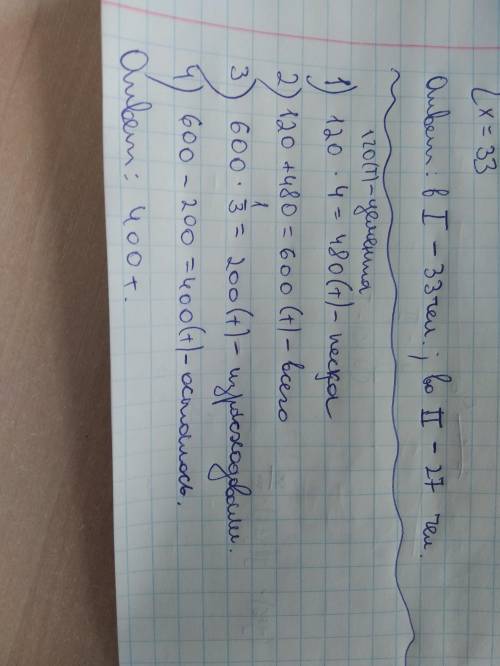 { x = 33
Ответ: в I – 33 чел.; во II – 27 чел.
120(т) – цемента
1) 120 · 4 = 480(т) – песка
2) 120 + 480 = 600 (т) – всего
3) 600 · 1/3 = 200(т) – израсходовали.
4) 600 – 200 = 400(т) – осталось.
Ответ: 400 т.